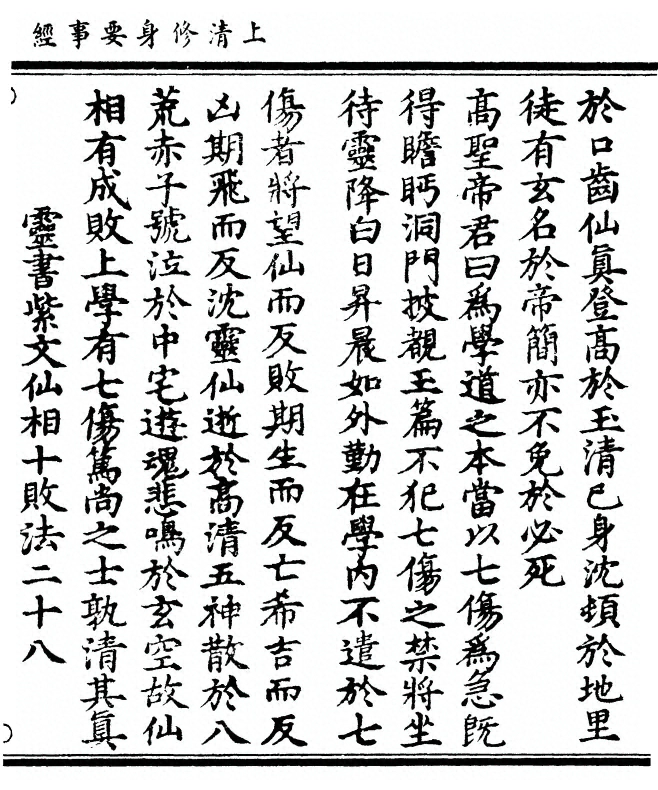 上清修身要事經
於口齒仙眞登髙於玉清已身沈頓於地里
徒有玄名於帝簡亦不免於必死
髙聖帝君曰爲學道之本當以七傷爲急旣
得瞻眄洞門披覩玉篇不犯七傷之禁將坐
待靈降白日昇晨如外勤在學內不遣於七
傷者將望仙而反敗期生而反亡希吉而反
凶期飛而反沈靈仙逝於髙清五神散於八
荒赤子號泣於中宅遊魂悲鳴於玄空故仙
相有成敗上學有七傷篤尚之士孰清其眞
靈書紫文仙相十敗法二十八